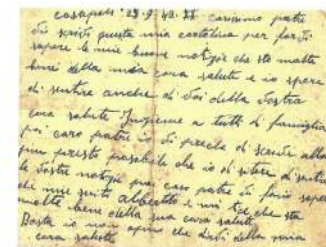 casapesti 23.9.42.XX carissimo patre
Vi scrivo questa mia cartolina per farvi
sapere le mie buone notizie che sto molto
bene della mia cara salute e io spero
di sentire anche di Voi della Vostra
cara salute Insieme a tutti di famiglia
poi caro patre io vi preche di scrivere alla
piu presto possibile che io di sentire
le Vostre notizie poi caro patre vi facio sapere
che mise scritto albertto e mi dice che sta
molte bene della sua cara salute
Basta io non agiuo che dirvi della mia
cara salute